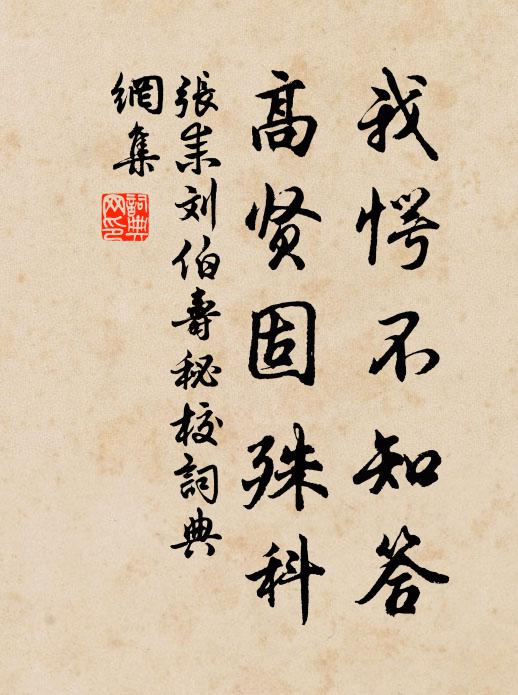 我愕不知答
高贤固殊科
張耒刘伯壽秘校詞典
網集
詞典
网印